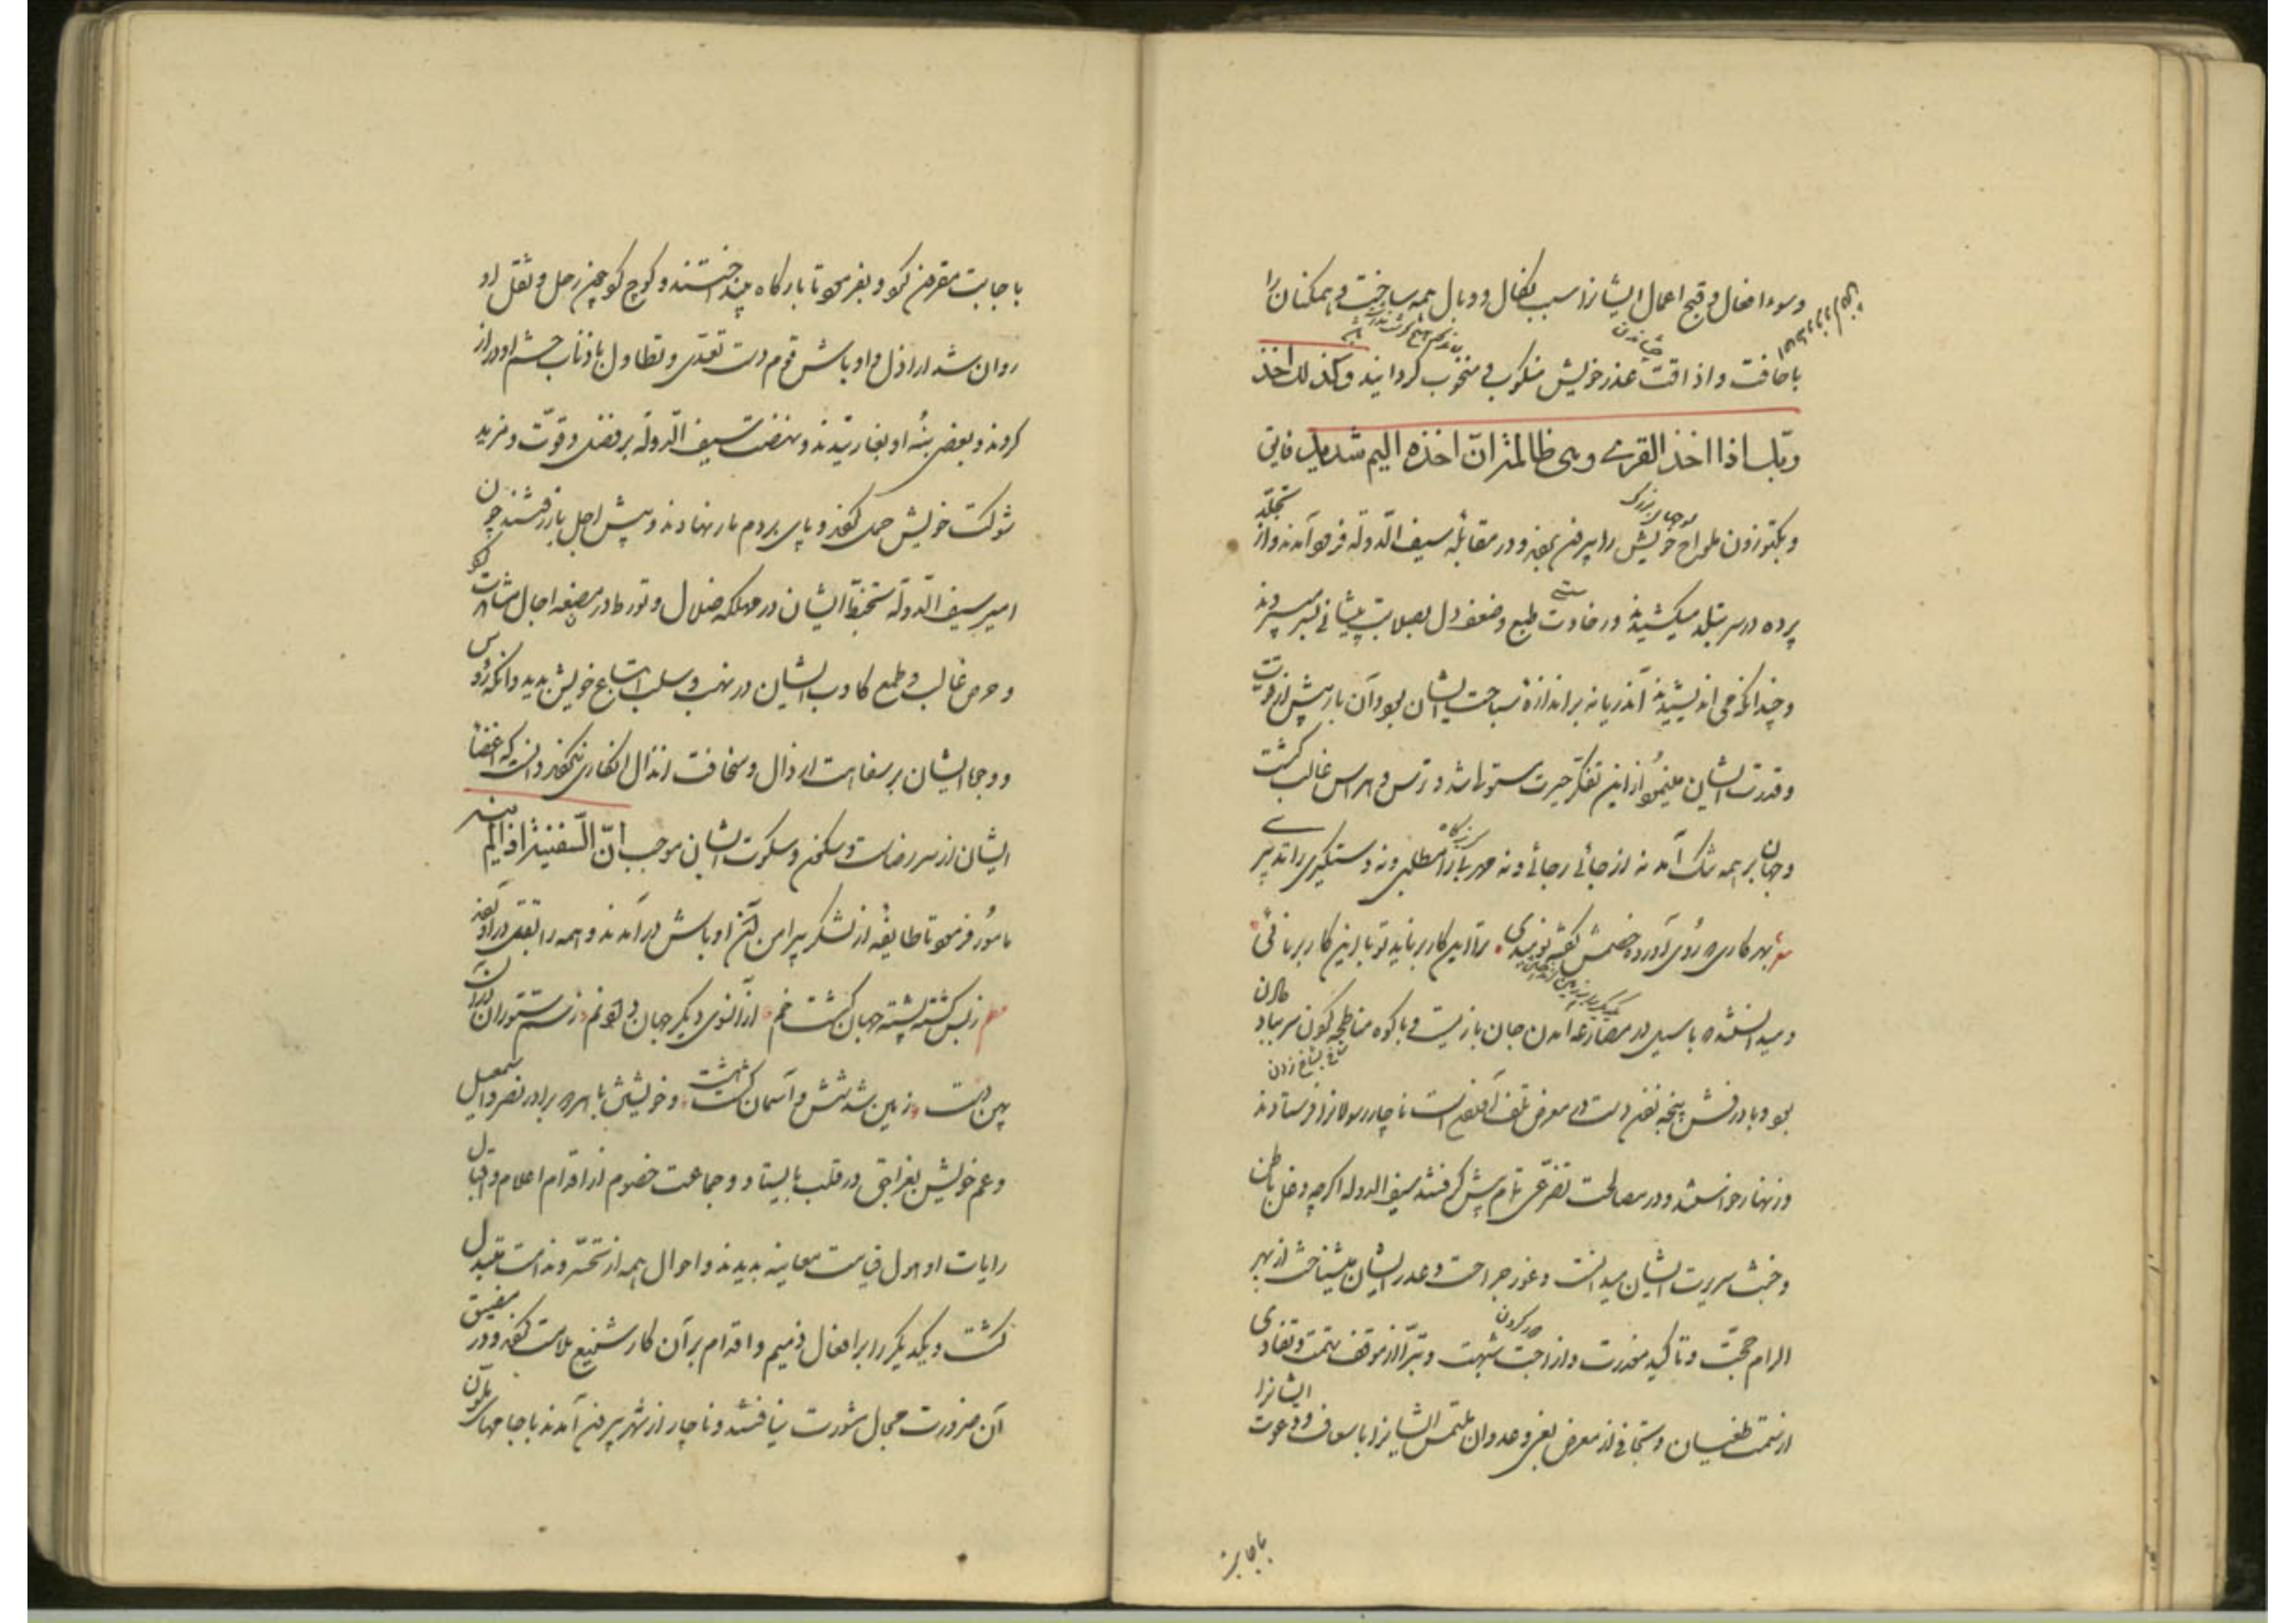 وسوء افعال و قبح اعمال ایشانرا سبب نکال و وبال همه ساخت و همکنان را
باخافت و اذاقت عذر خویش منکوب و منخوب کردانید و کذلک اخذ
ربّک اذا اخذ القری وهی ظالمة انّ اخذه الیم شدید فایق
و بکتوزون طوراح خویش را بیرون بردند و در مقابله سیف الدوله فرو آمدند و از تجلّد
پرده در سر تبلد میکشیدند و رخاوت طبع و ضعف دل بصلابت پیشانی بسر میبردند
و چندانکه می اندیشیدند آن دریا نه باندازهٔ سباحت ایشان بود و آن بار بیش از قوّت
و قدرت ایشان مینمود از این تفکر حیرت مستولی شد و ترس و هراس غالب کشت
و جهان بر همه تنک آمد نه از جائی رجائی و نه مهربانرا مطلبی و نه دستکیری را تدبیری
بهر کاری که روی آورد خصمش کفت نومیدی ترا این کار برناید تو با این کار برنائی
و میدانستند که با سیل در مصارعه آمدن جان بازیست و با کوه مناطحه کردن سر بباد دادن
شاخ بشاخ زدن
بود و با درفش پنجه زدن دست در معرض تلف آوردنست ناچار رسولانرا فرستادند
و زنهار خواستند و در مصالحت تضرّعی تمام پیش کرفتند سیف الدوله اکرچه دغل باطن
و خبث سریرت ایشان میدانست و غور جراحت و غدر ایشان میشناخت از بهر
الزام حجّت و تاکید معذرت و ازاحت شبهت و تبرّا از موقف تهمت و تفادی
از سمت طغیان و تجافی از معرض بغی و عدوان ملتمس ایشانرا باسعاف و دعوت ایشانرا
باجابت
باجابت مقرون کرد و بفرمود تا بارکاه بینداختند و کوچ کردند چون رحل و ثقل او
روان شد اراذل و اوباش قوم دست تعدّی و تطاول باذناب حشم او دراز
کردند و بعضی بنهٔ او بغارتیدند و نهضت سیف الدوله بر فضل قوّت و مزید
شوکت خویش حمل کردند و پای بر دم مار نهادند و پیش اجل باز رفتند چون
امیر سیف الدوله تخبّط ایشان در مهلکه ضلال و تورط در مصیعه اجال مشاهدت کرد
و حرص غالب و طمع کاذب ایشان در نهب و سلب اتباع خویش بدید و آنکه رؤس
و وجوه ایشان بر سفاهت ارذال و سخافت انذال انکاری نمیکردند دانست که اغضاء
ایشان از سر رضاست و سکون و سکوت ایشان موجب انّ السفیه اذا لم ینه
مامور فرمود تا طایفه از لشکر پیرامن آن اوباش درآمدند و همه را بقتل درآوردند
ز بس کشته پشته جهان کشت خم از آنسوی دیکر جهان داد نم ز سمّ ستوران در آن
پهن دشت زمین شد شش و آسمان کشت هشت و خویشتن با هر دو برادر نصر و اسمعیل
و عم خویش بغراجق در قلب بایستاد و جماعت خصوم از اقدام اعلام و اقبال
رایات او هول قیامت معاینه بدیدند و احوال همه از تحسّر و ندامت متبدل
کشت و یکدیکر را بر افعال ذمیم و اقدام بر آن کار شنیع ملامت کردند و در مضیق
آن ضرورت مجال مشورت نیافتند و ناچار از شهر بیرون آمدند با جامهای ملون